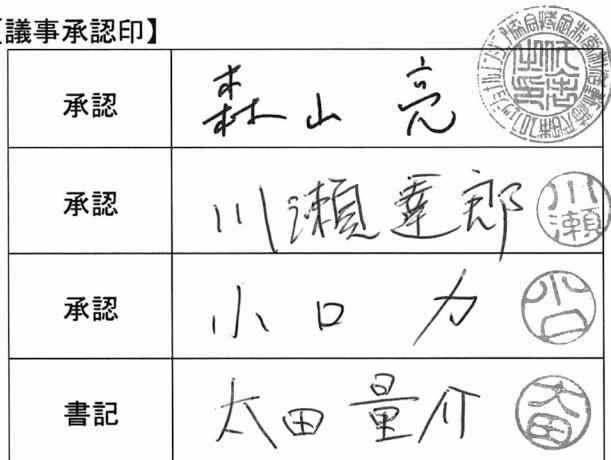 【議事承認印】
承認 森山 亮
承認 川瀬達郎 川瀬
承認 小口 力 小口
書記 太田量介 太田